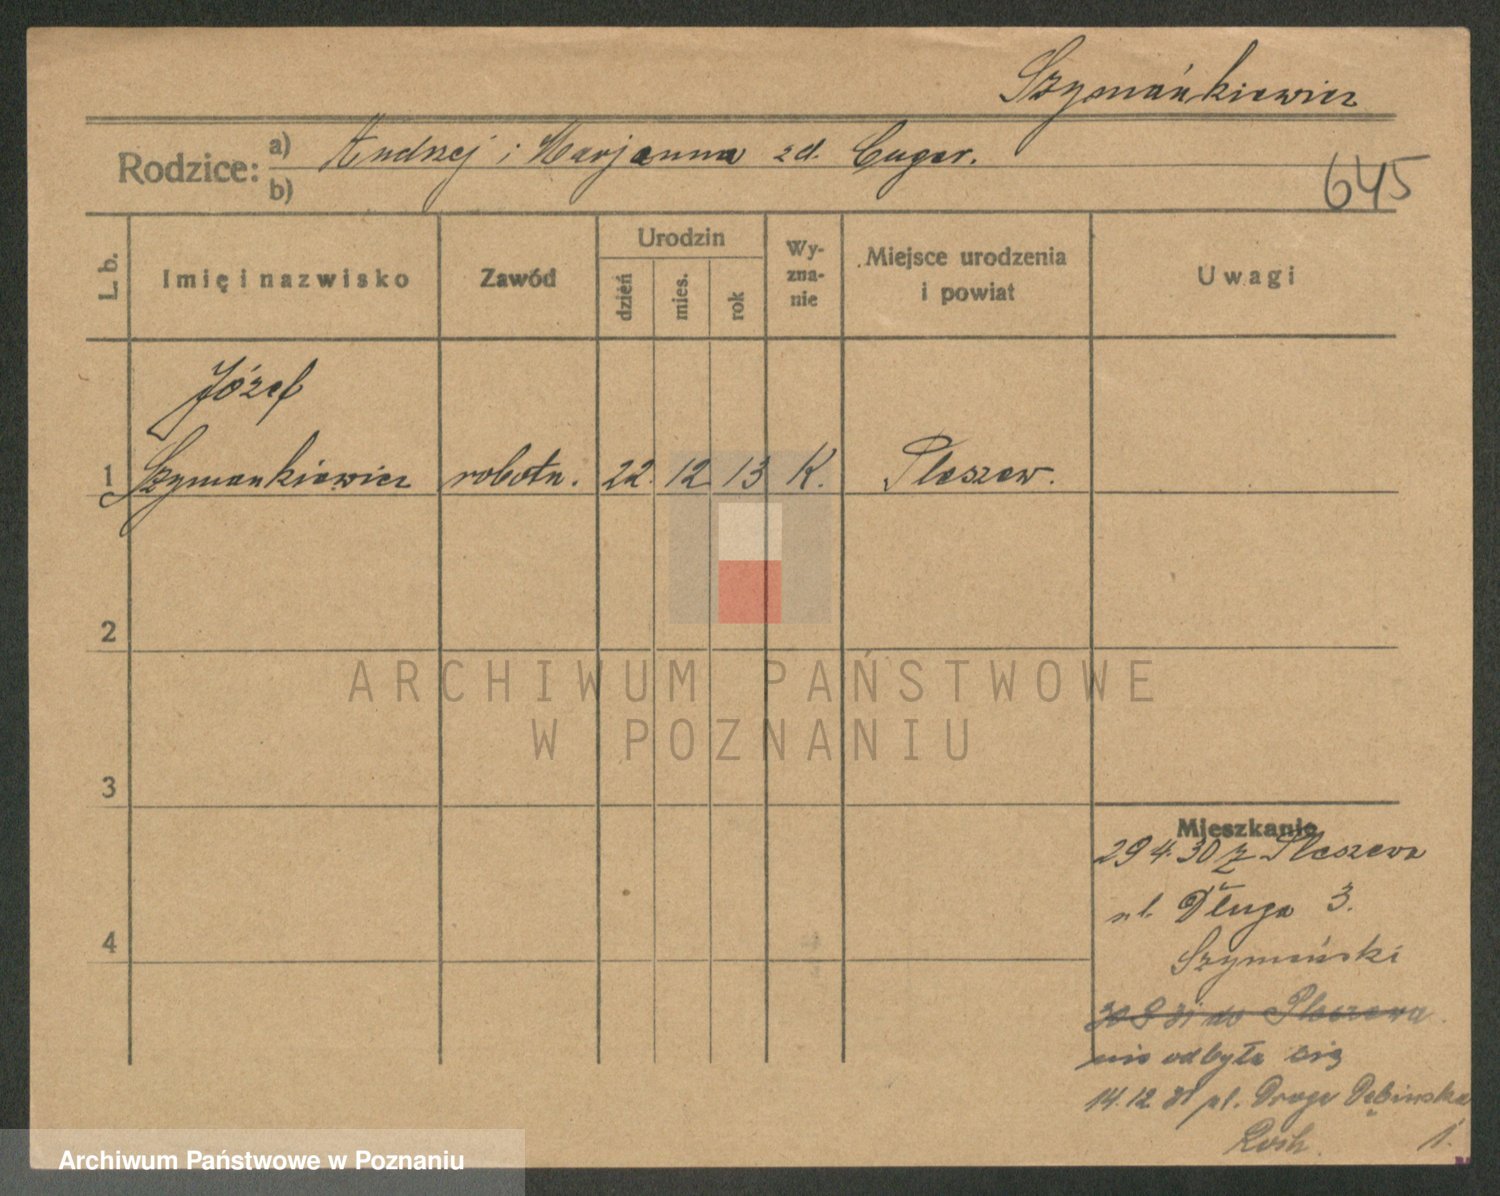 Szymańkiewicz
Rodzice: a) Andrzej i Marjanna zd. Cugar.
b)
645
L. b. Imię i nazwisko Zawód Urodzin dzień mies. rok Wy-zna-nie Miejsce urodzenia i powiat Uwagi
Józef
1 Szymankiewicz robotn. 22. 12. 13 K. Pleszew.
2
ARCHIWUM PAŃSTWOWE
W POZNANIU
3
Mieszkanie
29 4. 30 z Pleszewa
ul. Długa 3.
Szymański
30 8 31 do Pleszewa
nie odbyła się
4
14. 12 31 pl. Droga Dębińska
1.
Archiwum Państwowe w Poznaniu